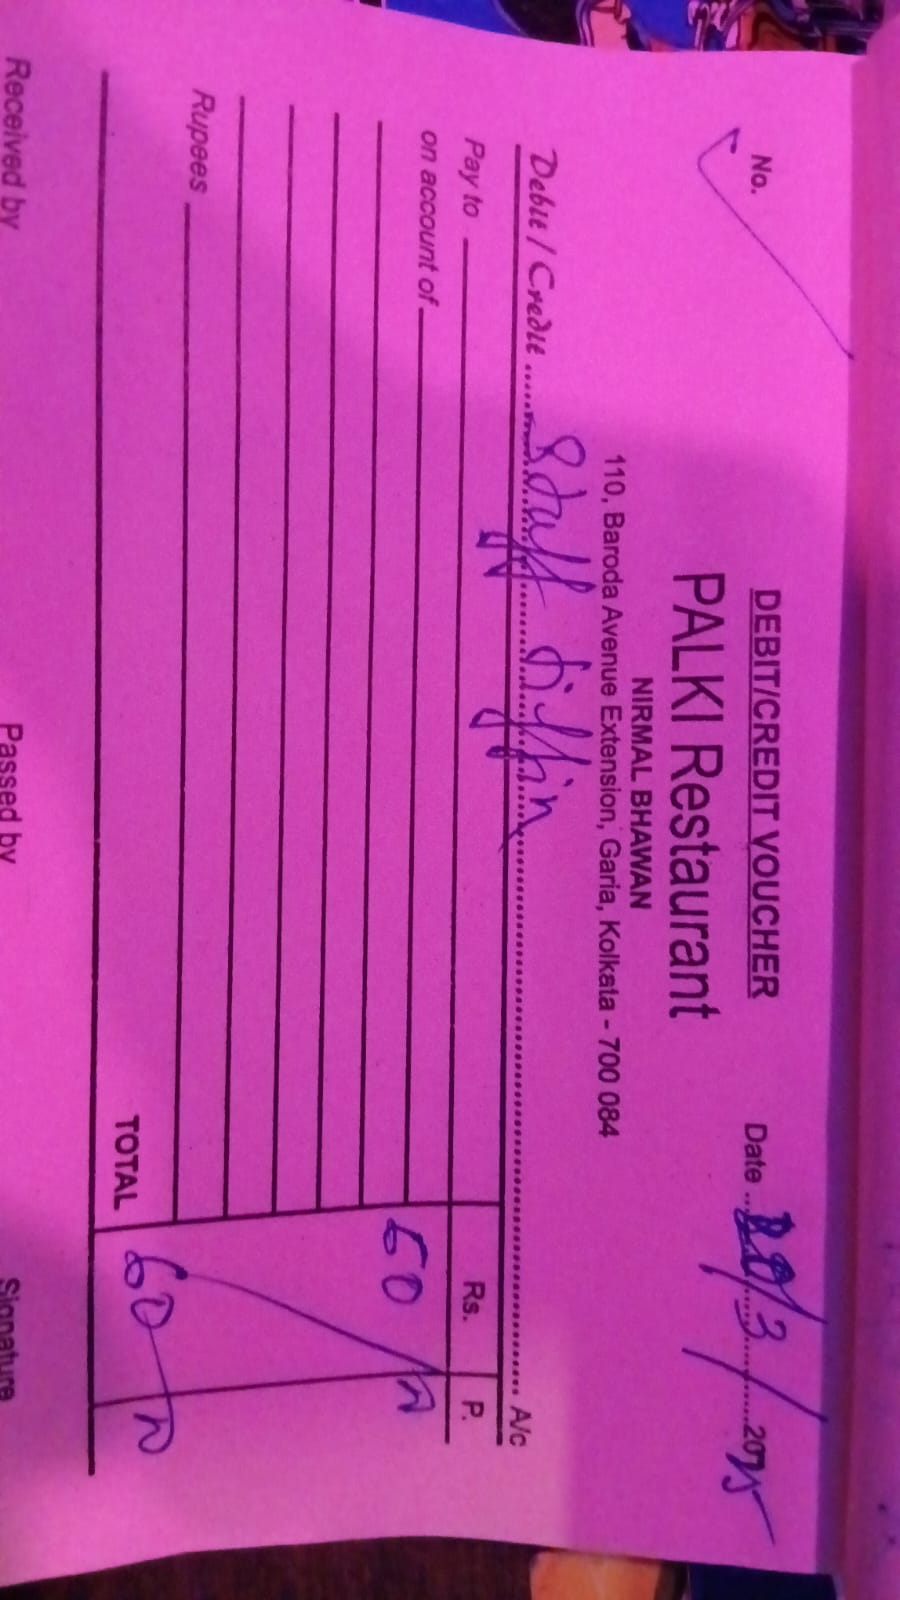 DEBIT/CREDIT VOUCHER
No.
PALKI Restaurant
Date ... /3/ 2025
NIRMAL BHAWAN
110, Baroda Avenue Extension, Garia, Kolkata - 700 084
Debit / Credit ...... Staff tiffin ...... A/c
Pay to Rs. P.
on account of
60
Rupees
TOTAL 60
Received by Passed by Signature